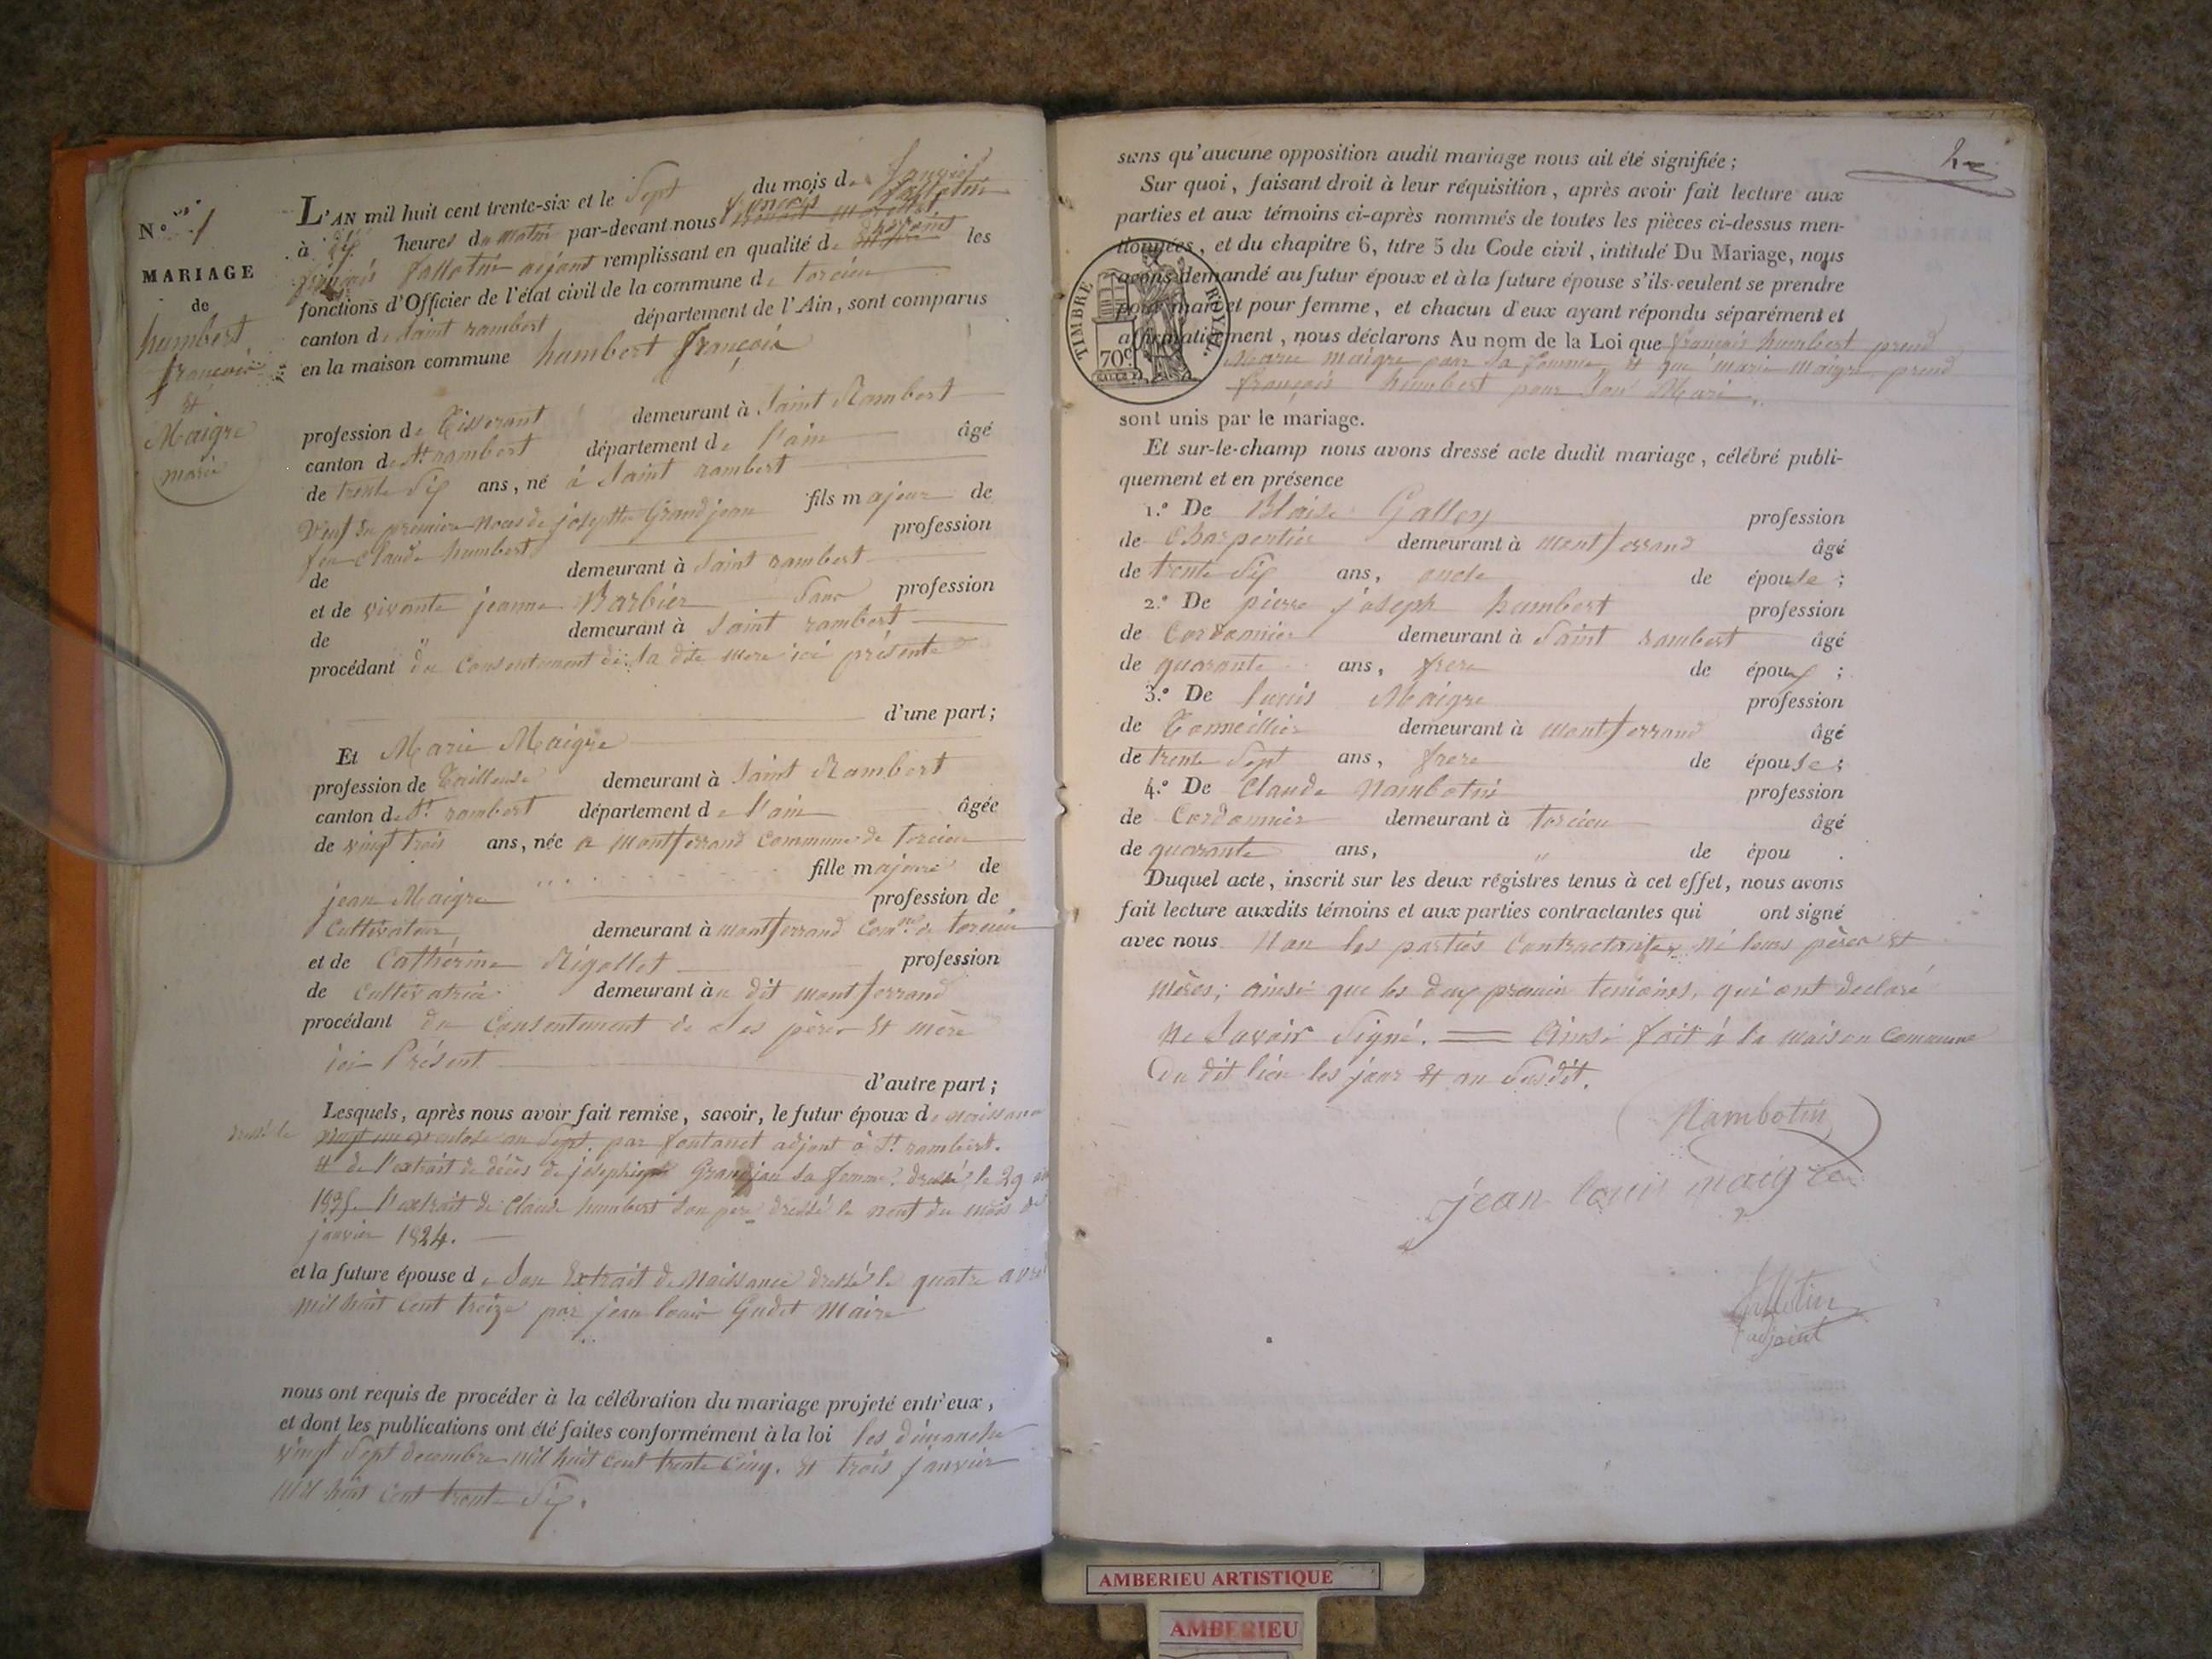 N° 1
MARIAGE
de
humbert
françois
et
Maigre
marie
L'AN mil huit cent trente-six et le Sept du mois de Janvier
à dix heures du matin par-devant nous françois fallotin
françois fallotin adjoint remplissant en qualité d'adjoint les
fonctions d'Officier de l'état civil de la commune de torcieu
canton de saint rambert département de l'Ain, sont comparus
en la maison commune humbert françois
profession de Tisserant demeurant à Saint Rambert
canton de St rambert département de l'ain âgé
de trente Six ans, né à Saint rambert
Veuf en premiere Noces de josephte Grandjean fils majeur de
feu Claude humbert profession
de demeurant à Saint rambert
et de vivante jeanne Barbier Sans profession
de " demeurant à Saint rambert
procédant du Consentement de la dite mere ici présente
d'une part;
Et Marie Maigre
profession de Tailleuse demeurant à Saint Rambert
canton de St. rambert département de l'ain âgée
de vingt trois ans, née a montferrand Commune de Torcieu
fille majeure de
jean Maigre profession de
Cultivateur demeurant à montferrand Comne. de torcieu
et de Cathérine Rigollet profession
de Cultivatrice demeurant au dit montferrand
procédant du Consentement de Ses père et mère
ici Présent
d'autre part;
Lesquels, après nous avoir fait remise, savoir, le futur époux de naissance
dressé le vingt un ventose an Sept. par fontanet adjoint à St. rambert.
et de l'extrait de décès de josephte Grandjean Sa femme dressé le 29
1835. l'extrait de Claude humbert Son père dressé le neuf du mois de
janvier 1824.
et la future épouse de Son Extrait de Naissance dressé le quatre avril
mil huit Cent treize par jean louis Gudet Maire
nous ont requis de procéder à la célébration du mariage projeté entr'eux,
et dont les publications ont été faites conformément à la loi les dimanche
vingt Sept decembre mil huit Cent trente Cinq. et trois janvier
mil huit Cent trente Six.
2
sans qu'aucune opposition audit mariage nous ait été signifiée;
Sur quoi, faisant droit à leur réquisition, après avoir fait lecture aux
parties et aux témoins ci-après nommés de toutes les pièces ci-dessus men-
tionnées, et du chapitre 6, titre 5 du Code civil, intitulé Du Mariage, nous
avons demandé au futur époux et à la future épouse s'ils veulent se prendre
pour mari et pour femme, et chacun d'eux ayant répondu séparément et
affirmativement, nous déclarons Au nom de la Loi que françois humbert prend
Marie Maigre pour Sa femme et que marie Maigre prend
françois humbert pour Son Mari.
TIMBRE ROYAL
70c.
sont unis par le mariage.
Et sur-le-champ nous avons dressé acte dudit mariage, célébré publi-
quement et en présence
1.° De Blaise Galley profession
de Charpentier demeurant à montferrand âgé
de trente Six ans, oncle de épouse;
2.° De pierre joseph humbert profession
de Cordonnier demeurant à Saint rambert âgé
de quarante ans, frere de époux;
3.° De louis Maigre profession
de Tonnellier demeurant à montferrand âgé
de trente Sept ans, frere de épouse;
4.° De Claude Nambotin profession
de Cordonnier demeurant à Torcieu âgé
de quarante ans, " de épou .
Duquel acte, inscrit sur les deux régistres tenus à cet effet, nous avons
fait lecture auxdits témoins et aux parties contractantes qui ont signé
avec nous Non les parties Contractantes, Ni leurs pères et
mères; ainsi que les deux premier temoins, qui ont declaré
Ne Savoir Signé. Ainsi fait à la maison Commune
Du dit lieu les jour et an Susdit.
Nambotin
jean louis maigre
fallotin
adjoint
AMBERIEU ARTISTIQUE
AMBERIEU